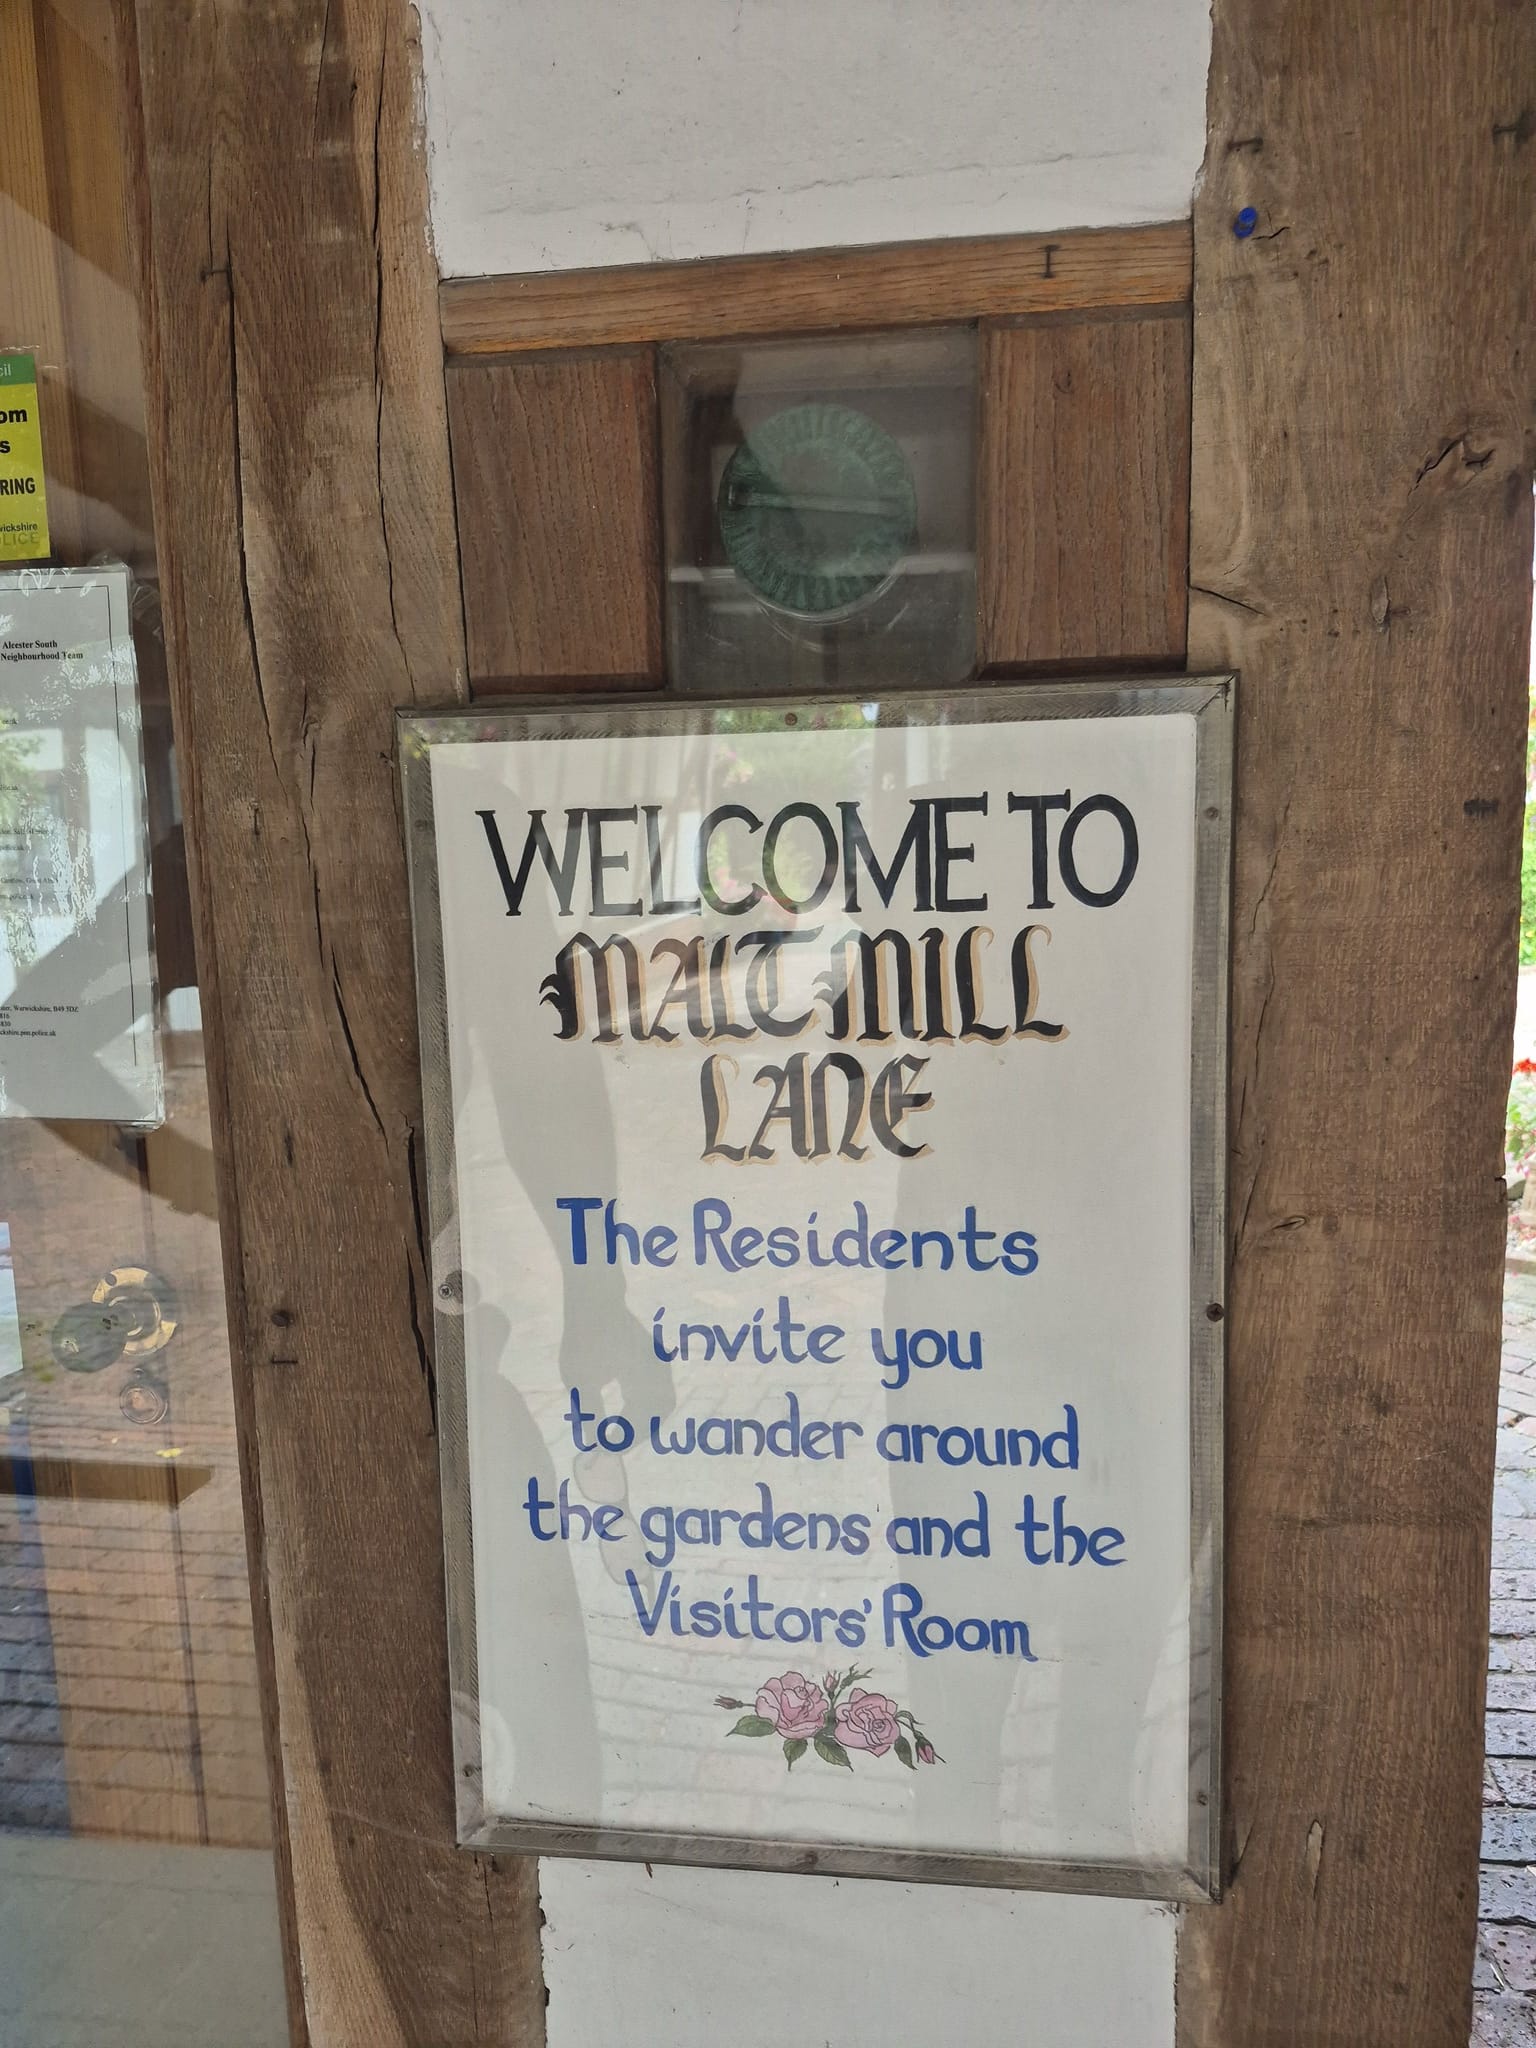 cil
om
s
RING
wickshire
LICE
Alcester South
Neighbourhood Team
Warwickshire, B49 5DZ
816
830
ckshire.pnn.police.uk
WELCOME TO
MALT MILL
LANE
The Residents
invite you
to wander around
the gardens and the
Visitors' Room